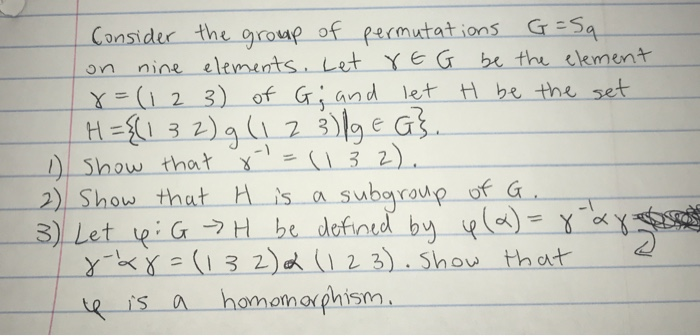 Consider the group of permutations G = S9
on nine elements. Let γ ∈ G be the element
γ = (1 2 3) of G; and let H be the set
H = {(1 3 2) g (1 2 3) | g ∈ G}.
1) Show that γ⁻¹ = (1 3 2).
2) Show that H is a subgroup of G.
3) Let φ: G → H be defined by φ(α) = γ⁻¹αγ
γ⁻¹αγ = (1 3 2) α (1 2 3). Show that
φ is a homomorphism.